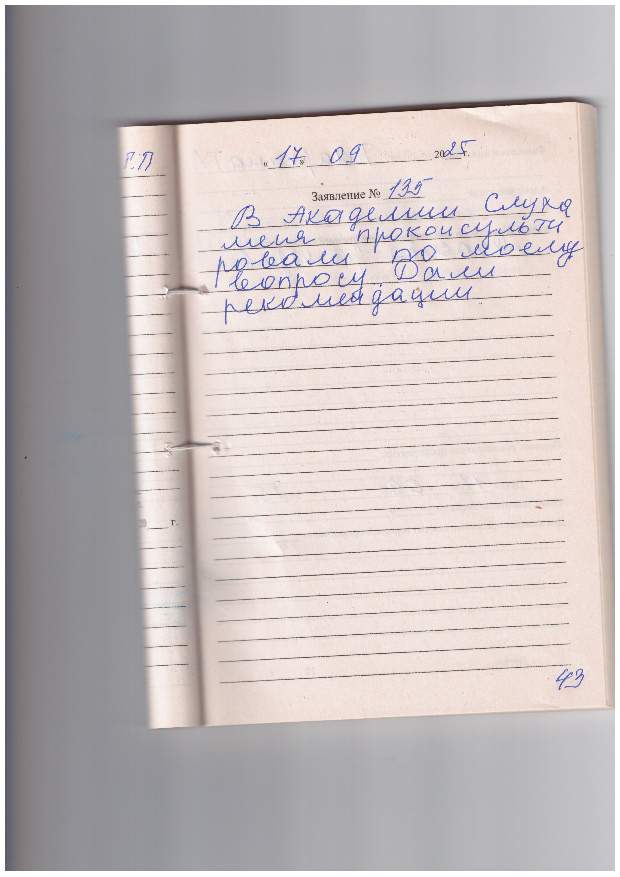 Г.П
« 17 » 09 2025 г.
Заявление № 135
В Академии Слуха
меня проконсульти
ровали по моему
вопросу. Дали
рекомендации
г.
43